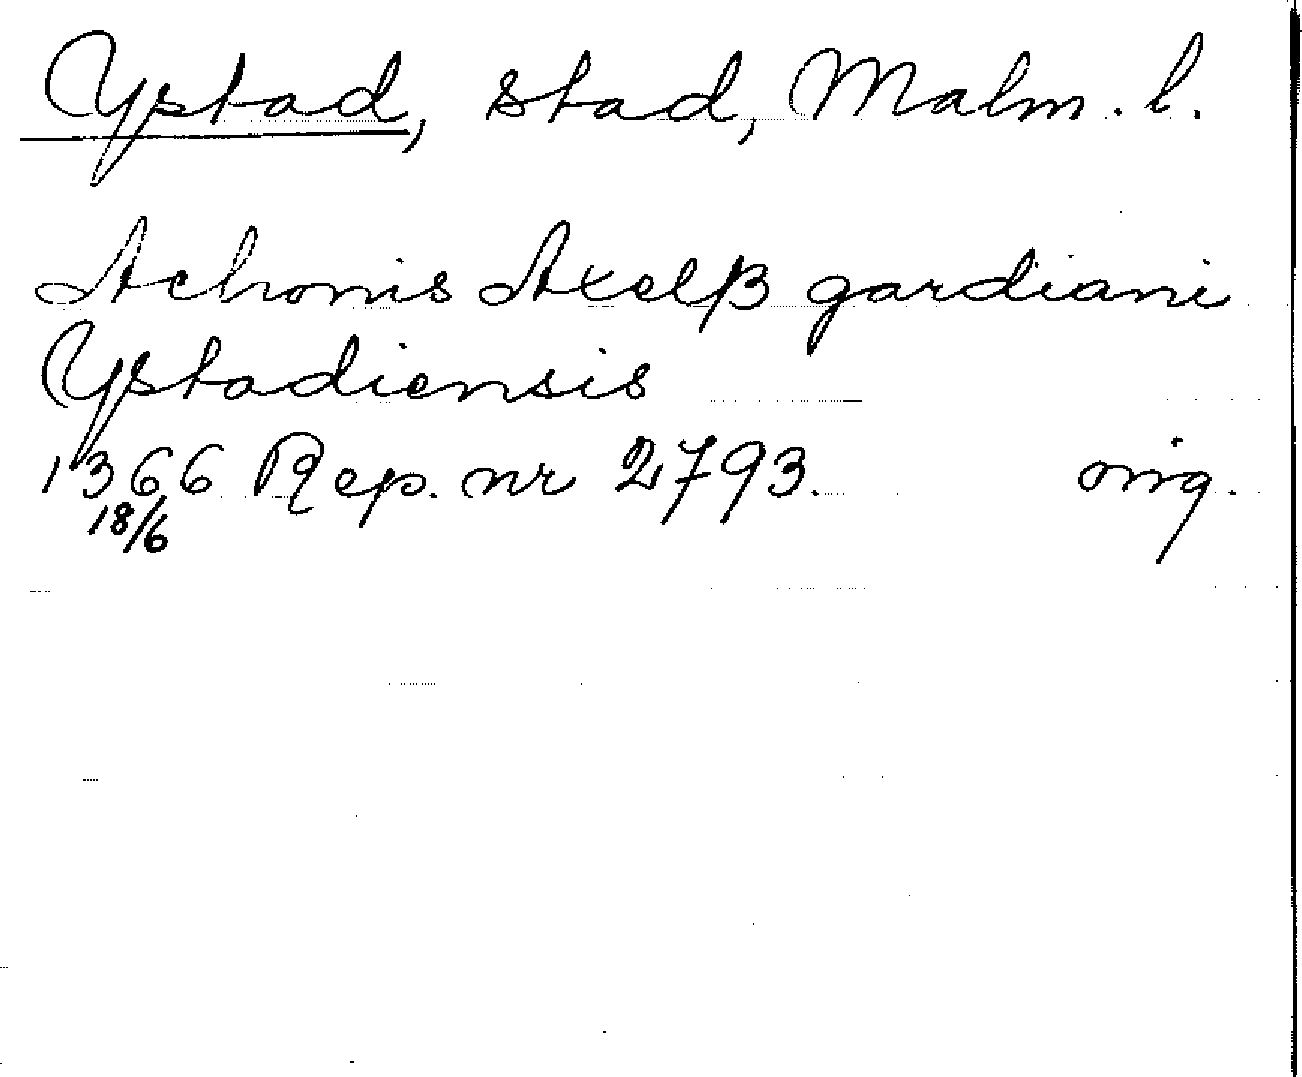 Ystad, stad, Malm. l.
Achonis Axelß gardiani
Ystadiensis
1366 Rep. nr 2793. orig.
18/6